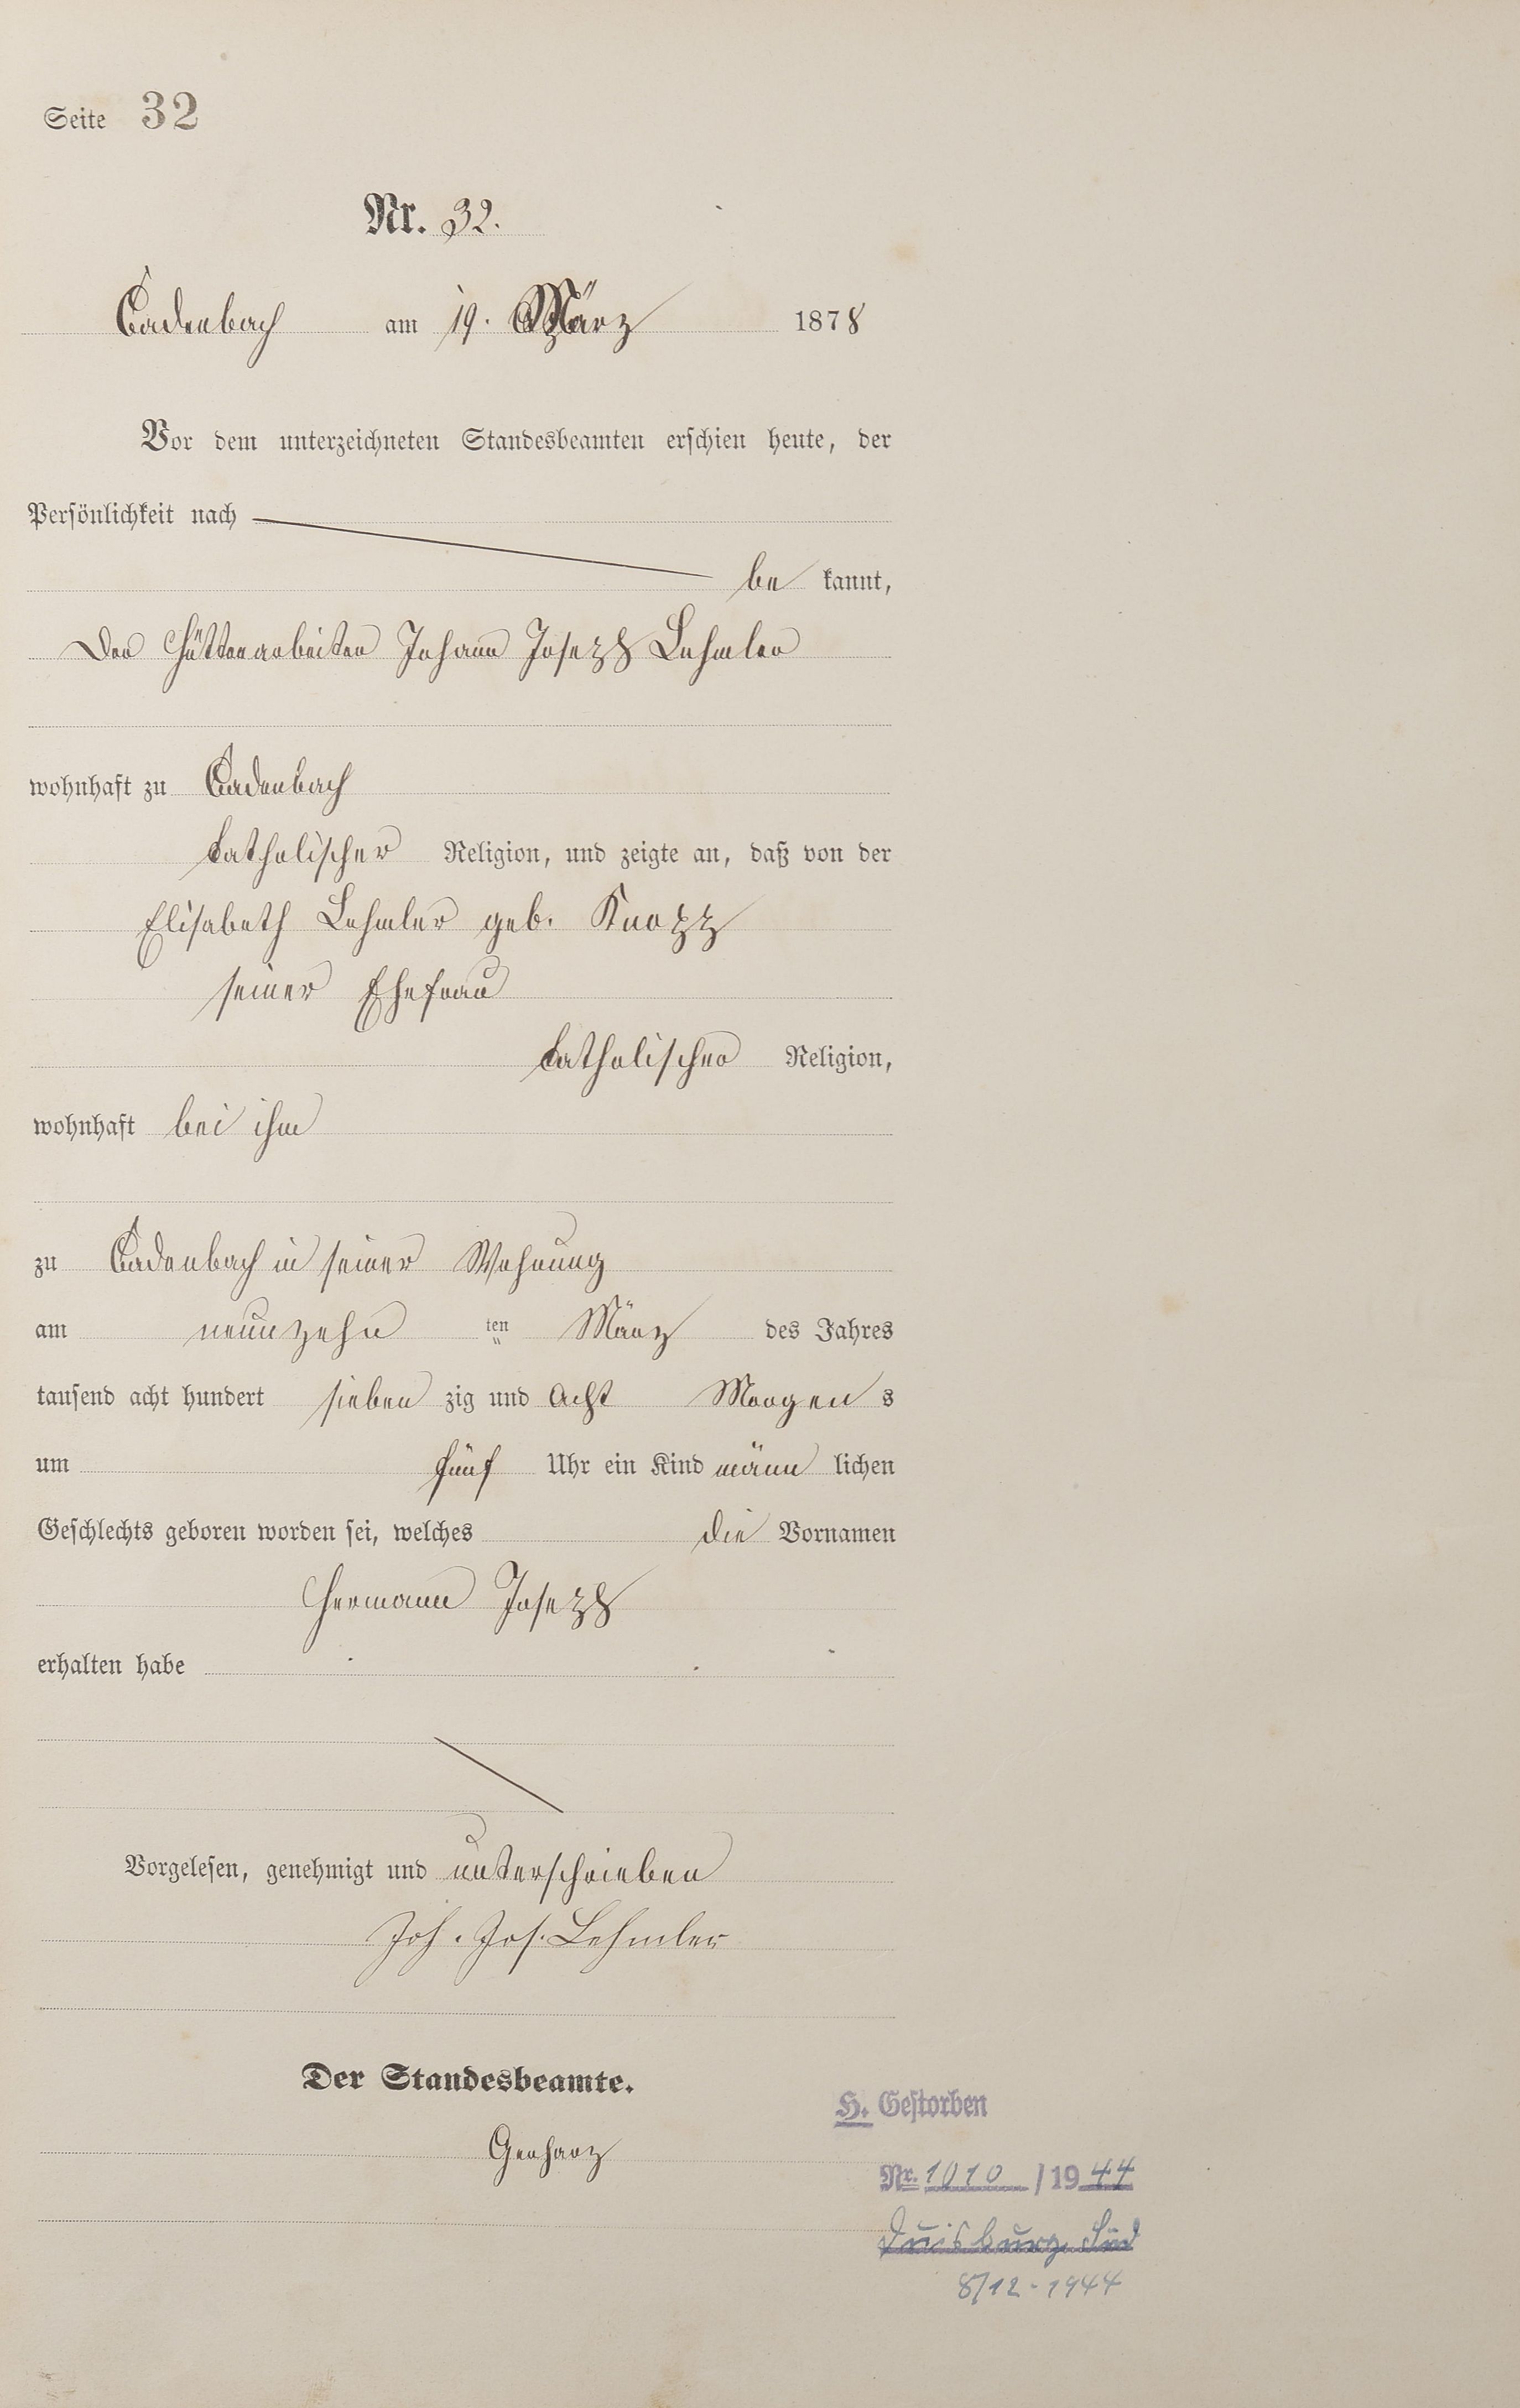 Seite 32
Nr. 32.
Cadenbach am 19. März 1878
Vor dem unterzeichneten Standesbeamten erschien heute, der
Persönlichkeit nach
be kannt,
der Hüttenarbeiter Johann Joseph Lehmler
wohnhaft zu Cadenbach
katholischer Religion, und zeigte an, daß von der
Elisabeth Lehmler geb. Knopp
seiner Ehefrau
katholischer Religion,
wohnhaft bei ihm
zu Cadenbach in seiner Wohnung
am neunzehn ten März des Jahres
tausend acht hundert sieben zig und acht Morgen s
um fünf Uhr ein Kind männ lichen
Geschlechts geboren worden sei, welches die Vornamen
Hermann Joseph
erhalten habe
Vorgelesen, genehmigt und unterschrieben
Joh. Jos. Lehmler
Der Standesbeamte.
Gerharz
H. Gestorben
Nr. 1010 / 1944
Duisburg Süd
8/12-1944